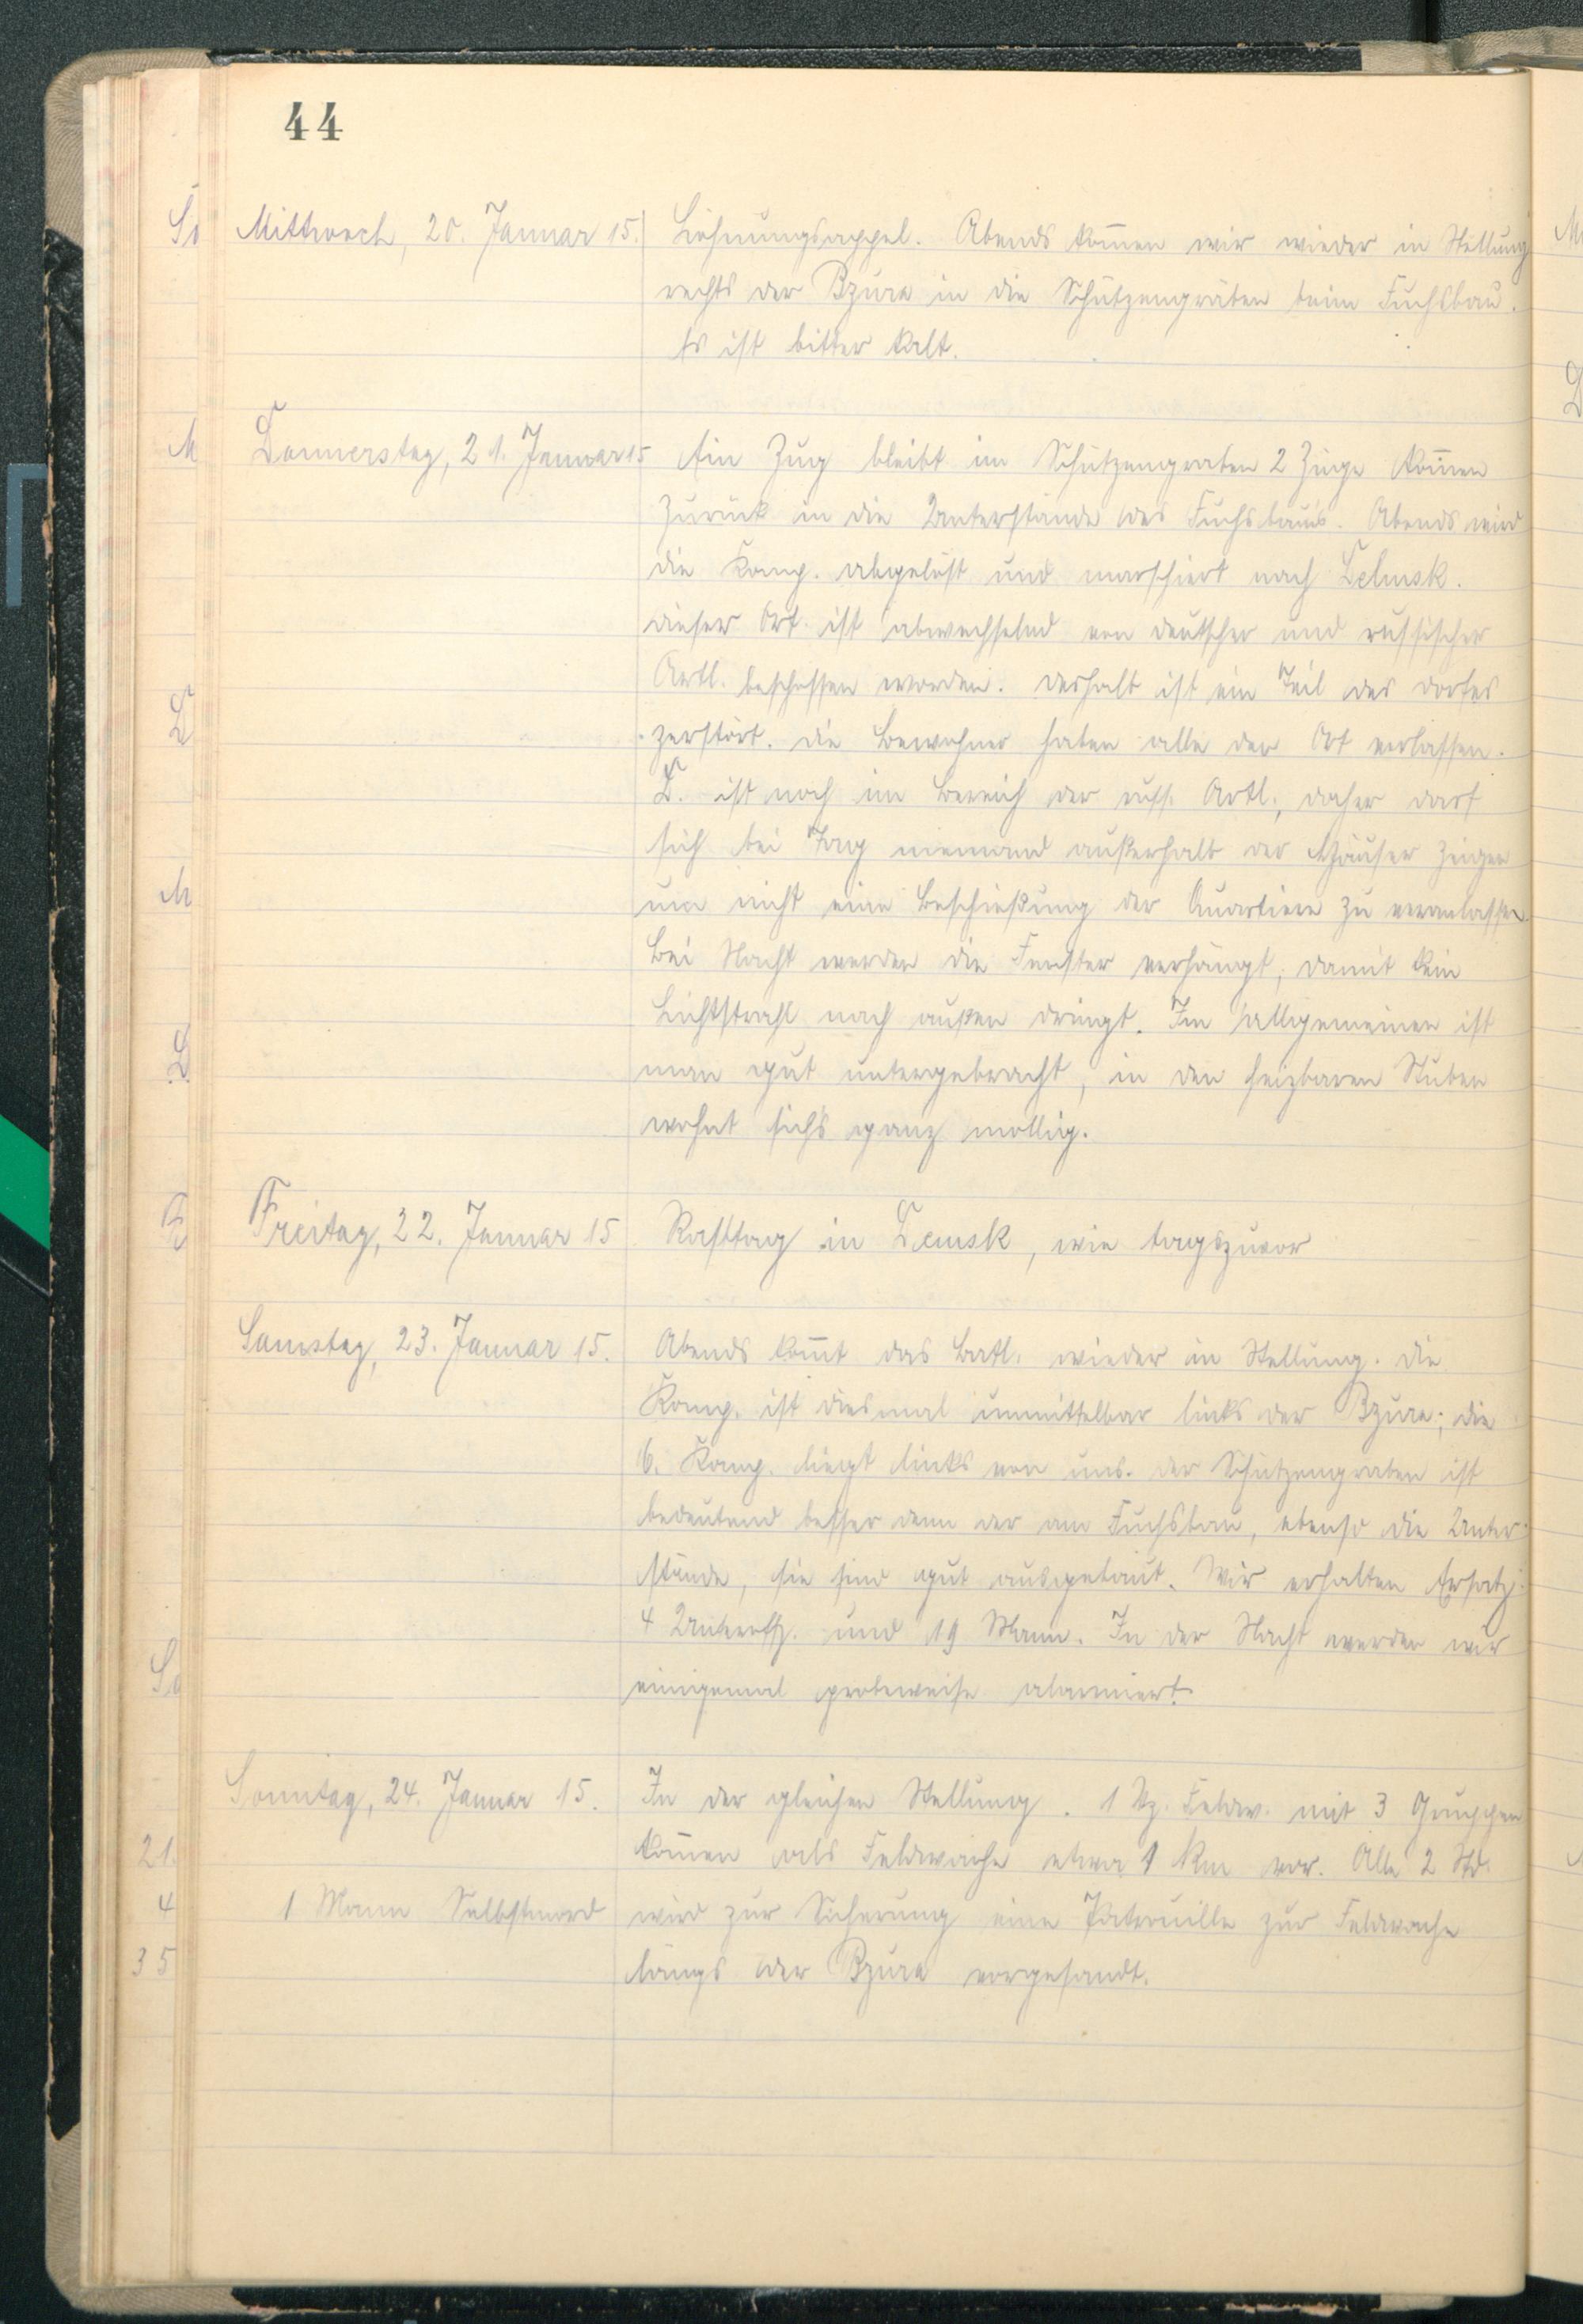 44
Mittwoch, 20. Januar 15.
Löhnungsappel. Abends kom̅en wir wieder in Stellung
rechts der Bzura in die Schützengräben beim Fuchsbau.
Es ist bitter kalt.
Donnerstag, 21. Januar 15
Ein Zug bleibt im Schützengraben 2 Züge kom̅en
zurück in die Unterstände des Fuchsbaus. Abends wird
die Komp. abgelöst und marschiert nach
dieser Ort ist abwechselnd von deutscher und russischer
Artl. beschossen worden. deshalb ist ein Teil des Dorfes
zerstört. die Bewohner haben alle den Ort verlassen.
D. ist noch im Bereich der russ. Artl., daher darf
sich bei Tag niemand außerhalb der Häuser zeigen
um nicht eine Beschießung der Quartiere zu veranlassen.
Bei Nacht werden die Fenster verhängt, damit kein
Lichtstrahl nach außen dringt. Im allgemeinen ist
man gut untergebracht, in den heizbaren Stuben
wohnt sichs ganz mollig.
Freitag, 22. Januar 15
Rasttag in wie tagszuvor
Samstag, 23. Januar 15.
Abends kom̅t das Batl. wieder in Stellung. die
Komp. ist diesmal unmittelbar links der Bzura; die
6. Komp. liegt links von uns. der Schützengraben ist
bedeutend besser denn der am Fuchsbau, ebenso die Unter-
stände, sie sind gut ausgebaut. Wir erhalten Ersatz:
4 Unteroffz. und 19 Mann. In der Nacht werden wir
einigemal probeweise alarmiert.
Sonntag, 24. Januar 15.
In der gleichen Stellung. 1 Vz. Feldw. mit 3 Gruppen
kom̅en als Feldwache etwa 1 km vor. Alle 2 Std.
1 Mann Selbstmord
wird zur Sicherung eine Patrouille zur Feldwache
längs der Bzura vorgesandt.